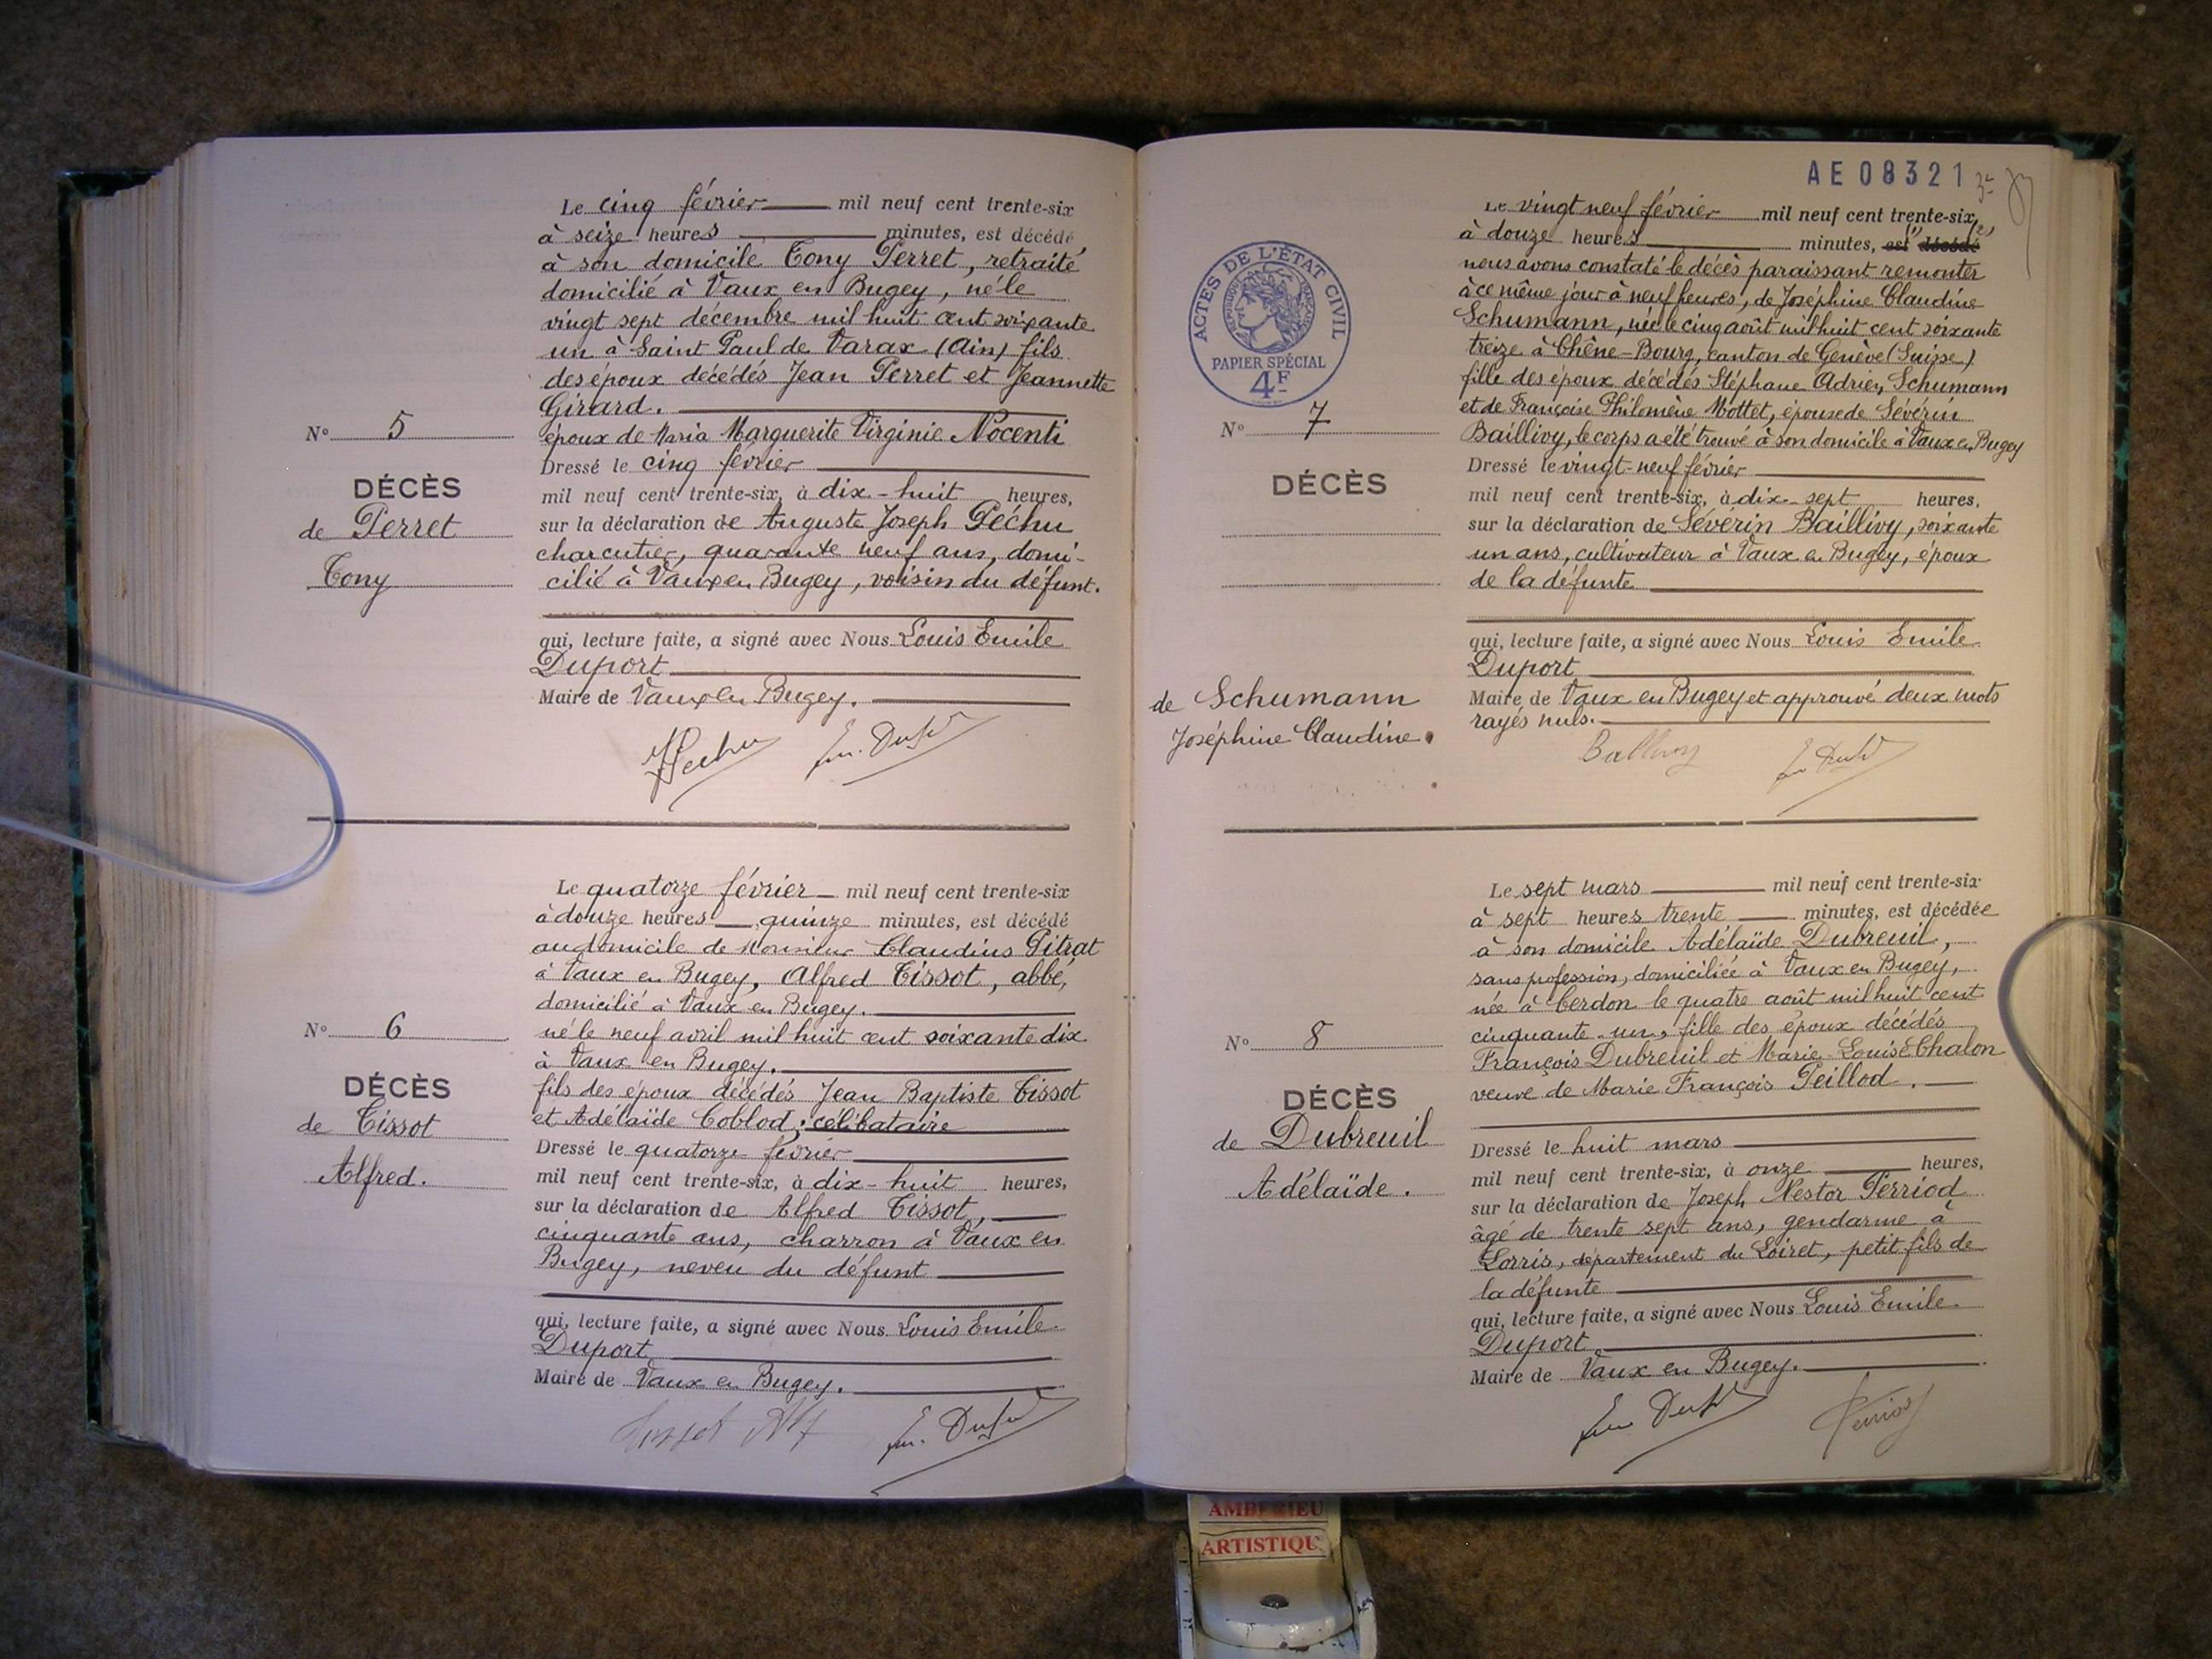 Le cinq février mil neuf cent trente-six
à seize heures minutes, est décédé
à son domicile Tony Perret, retraité
domicilié à Vaux en Bugey, né le
vingt sept décembre mil huit cent soixante
un à Saint Paul de Varax (Ain) fils
des époux décédés Jean Perret et Jeannette
Girard.
N° 5
époux de Maria Marguerite Virginie Nocenti
Dressé le cinq février
DÉCÈS
mil neuf cent trente-six, à dix-huit heures,
de Perret
sur la déclaration de Auguste Joseph Péchu
charcutier, quarante neuf ans, domi-
Tony
cilié à Vaux en Bugey, voisin du défunt.
qui, lecture faite, a signé avec Nous Louis Emile
Duport
Maire de Vaux en Bugey.
Pechu Em. Duport
Le quatorze février mil neuf cent trente-six
à douze heures quinze minutes, est décédé
au domicile de Monsieur Claudius Pitrat
à Vaux en Bugey, Alfred Tissot, abbé,
domicilié à Vaux en Bugey.
N° 6
né le neuf avril mil huit cent soixante dix
à Vaux en Bugey.
DÉCÈS
fils des époux décédés Jean Baptiste Tissot
de Tissot
et Adélaïde Coblod, célibataire
Dressé le quatorze février
Alfred.
mil neuf cent trente-six, à dix-huit heures,
sur la déclaration de Alfred Tissot,
cinquante ans, charron à Vaux en
Bugey, neveu du défunt
qui, lecture faite, a signé avec Nous Louis Emile
Duport
Maire de Vaux en Bugey.
Tissot Alf Em. Duport
AE 08321
Le vingt neuf février mil neuf cent trente-six
à douze heures minutes, est décédé (1) (2)
nous avons constaté le décès paraissant remonter
à ce même jour à neuf heures, de Joséphine Claudine
Schumann, née le cinq août mil huit cent soixante
treize à Chêne-Bourg, canton de Genève (Suisse)
fille des époux décédés Stéphane Adrien Schumann
et de Françoise Philomène Mottet, épouse de Sévérin
Baillivy, le corps a été trouvé à son domicile à Vaux en Bugey
ACTES DE L'ÉTAT CIVIL
RÉPUBLIQUE FRANÇAISE
PAPIER SPÉCIAL
4F
N° 7
Dressé le vingt-neuf février
DÉCÈS
mil neuf cent trente-six, à dix-sept heures,
sur la déclaration de Sévérin Baillivy, soixante
un ans, cultivateur à Vaux en Bugey, époux
de la défunte
qui, lecture faite, a signé avec Nous Louis Emile
Duport
de Schumann
Maire de Vaux en Bugey et approuvé deux mots
Joséphine Claudine.
rayés nuls.
Baillivy Em Duport
Le sept mars mil neuf cent trente-six
à sept heures trente minutes, est décédée
à son domicile Adélaïde Dubreuil,
sans profession, domiciliée à Vaux en Bugey,
née à Cerdon le quatre août mil huit cent
cinquante-un, fille des époux décédés
N° 8
François Dubreuil et Marie-Louise Chalon
veuve de Marie François Peillod.
DÉCÈS
de Dubreuil
Dressé le huit mars
Adélaïde.
mil neuf cent trente-six, à onze heures,
sur la déclaration de Joseph Nestor Perriod
âgé de trente sept ans, gendarme à
Lorris, département du Loiret, petit fils de
la défunte
qui, lecture faite, a signé avec Nous Louis Emile
Duport
Maire de Vaux en Bugey.
Em Duport Perriod
AMBERIEU
ARTISTIQU